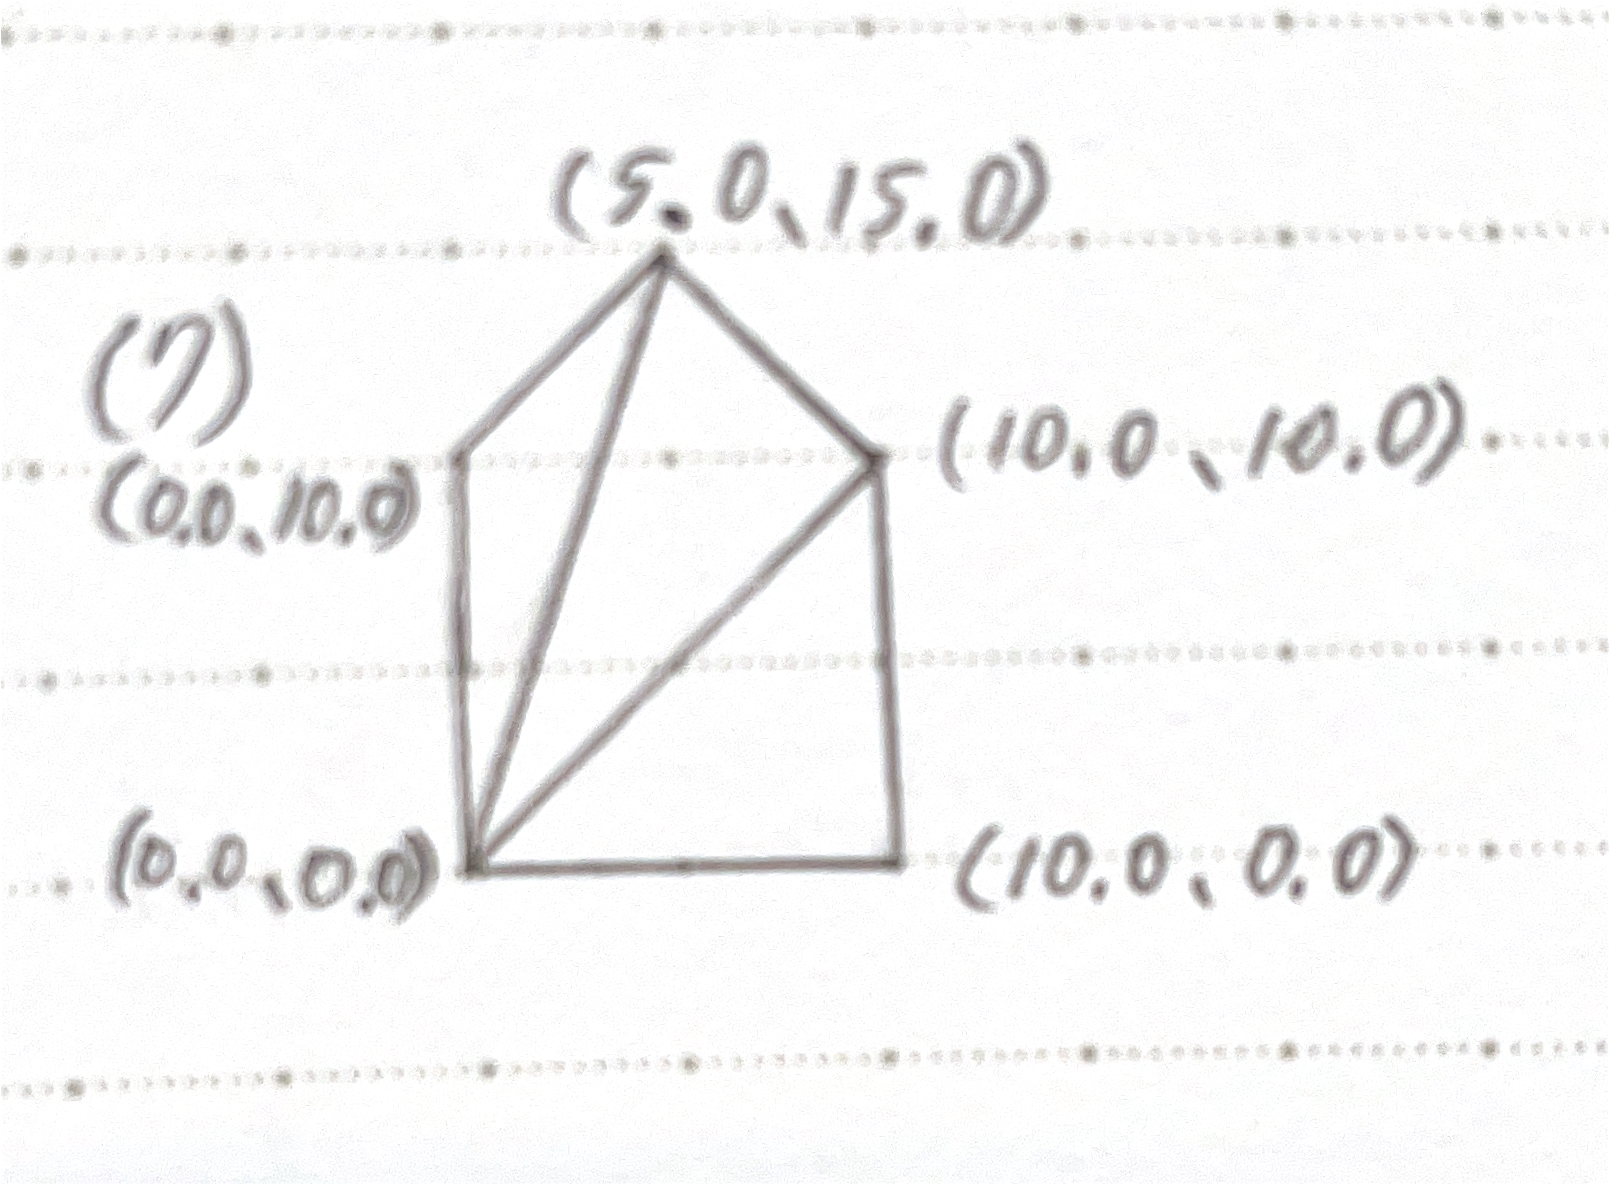 (5.0、15.0)
(7)
(10.0、10.0)
(0.0、10.0)
(0.0、0.0)
(10.0、0.0)